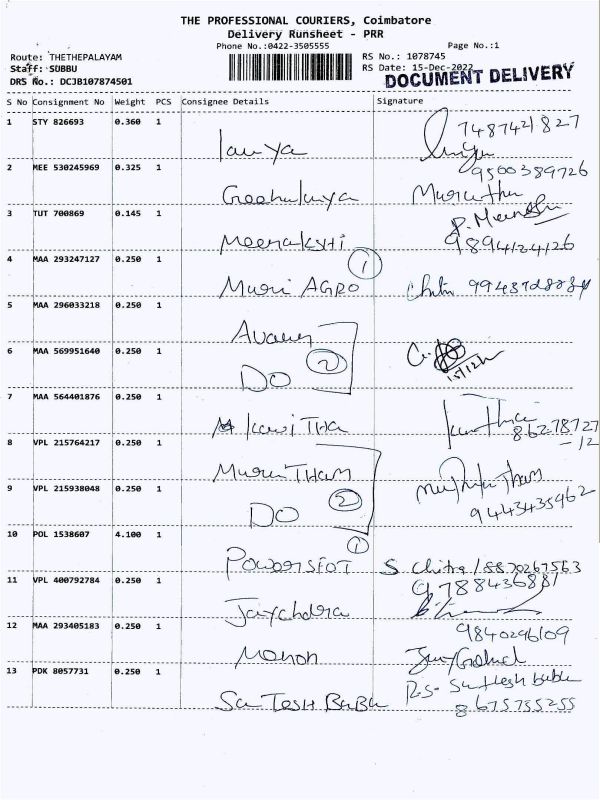 THE PROFESSIONAL COURIERS, Coimbatore
Delivery Runsheet - PRR
Phone No.:0422-3505555 Page No.:1
Route: THETHEPALAYAM RS No.: 1078745
Staff: SUBBU RS Date: 15-Dec-2022
DRS No.: DCJB107874501 DOCUMENT DELIVERY
S No Consignment No Weight PCS Consignee Details Signature
1 STY 826693 0.360 1 7487421827
2 MEE 530245969 0.325 1 9500389726
3 TUT 700869 0.145 1 Meenakshi 9894124126
4 MAA 293247127 0.250 1 Muri AGRO 1
5 MAA 296033218 0.250 1
6 MAA 569951640 0.250 1 DO 2 15/12/22
7 MAA 564401876 0.250 1 KaviTHa
8 VPL 215764217 0.250 1 MuruTHAM
9 VPL 215938048 0.250 1 DO 2 9443435962
10 POL 1538607 4.100 1 1 S Chitra / 8870267563
11 VPL 400792784 0.250 1 9788436881
12 MAA 293405183 0.250 1 Manoh 9840296109
13 PDK 8057731 0.250 1 SaTESH BaBu 8675755255